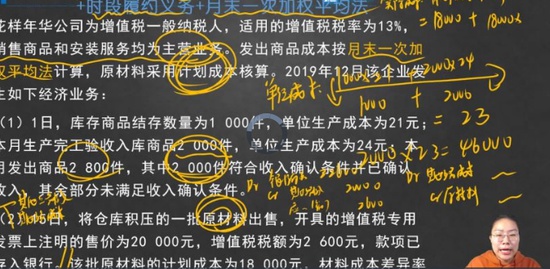 +时段履约义务+月末一次加权平均法
花样年华公司为增值税一般纳税人，适用的增值税税率为13%，
销售商品和安装服务均为主营业务。发出商品成本按月末一次加
权平均法计算，原材料采用计划成本核算。2019年12月该企业发
生如下经济业务：
（1）1日，库存商品结存数量为1 000件，单位生产成本为21元；
本月生产完工验收入库商品2 000件，单位生产成本为24元；本
月发出商品2 800件，其中2 000件符合收入确认条件并已确认
收入，其余部分未满足收入确认条件。
（2）05日，将仓库积压的一批原材料出售，开具的增值税专用
发票上注明的售价为20 000元，增值税税额为2 600元，款项已
存入银行。该批原材料的计划成本为18 000元，材料成本差异率
=18000+18000
单位成本
1000 + 2000
=23
2000×23=46000
Dr
20000
2600
Dr
Cr 原材料